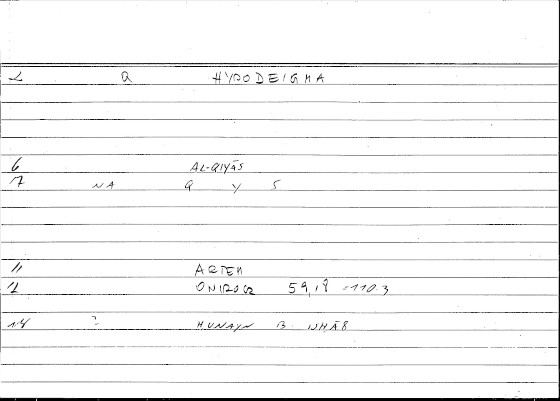 2 Q HYPODEIGMA
6 AL-QIYĀS
7 NA Q Y S
11 ARTEM
12 ONIROCR 59,18 =110.3
14 ? HUNAYN B.